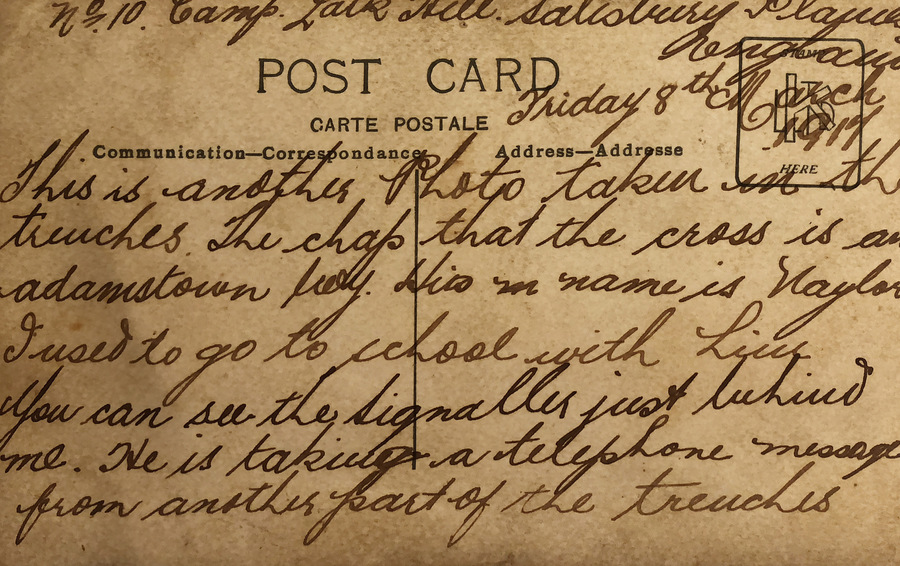 No. 10. Camp. Lark Hill. Salisbury Plains
England
POST CARD
STAMP
Friday 8th March
CARTE POSTALE
1917
Communication—Correspondance
Address—Addresse
HERE
This is another Photo taken in the
trenches. The chap that the cross is an
adamstown boy. His m name is Naylor
I used to go to school with him
You can see the signaller just behind
me. He is taking a telephone message
from another part of the trenches